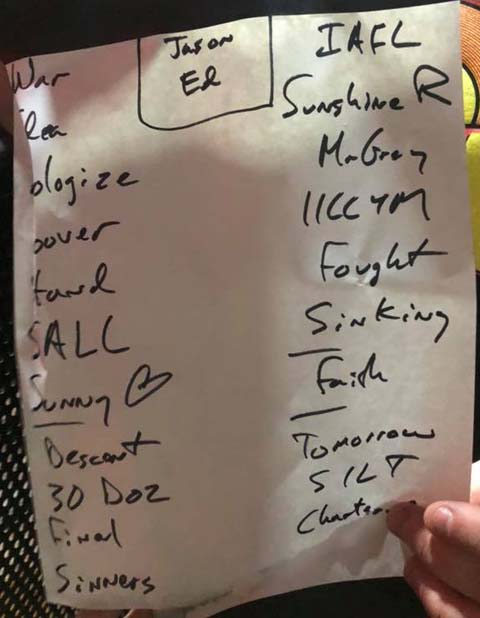 War
ologize
oover
tand
SALC
Sunny
Descent
30 Doz
Final
Sinners
Jason
Ed
IAFL
Sunshine R
Mr Gray
IICCYM
Fought
Sinking
Faith
Tomorrow
SILT